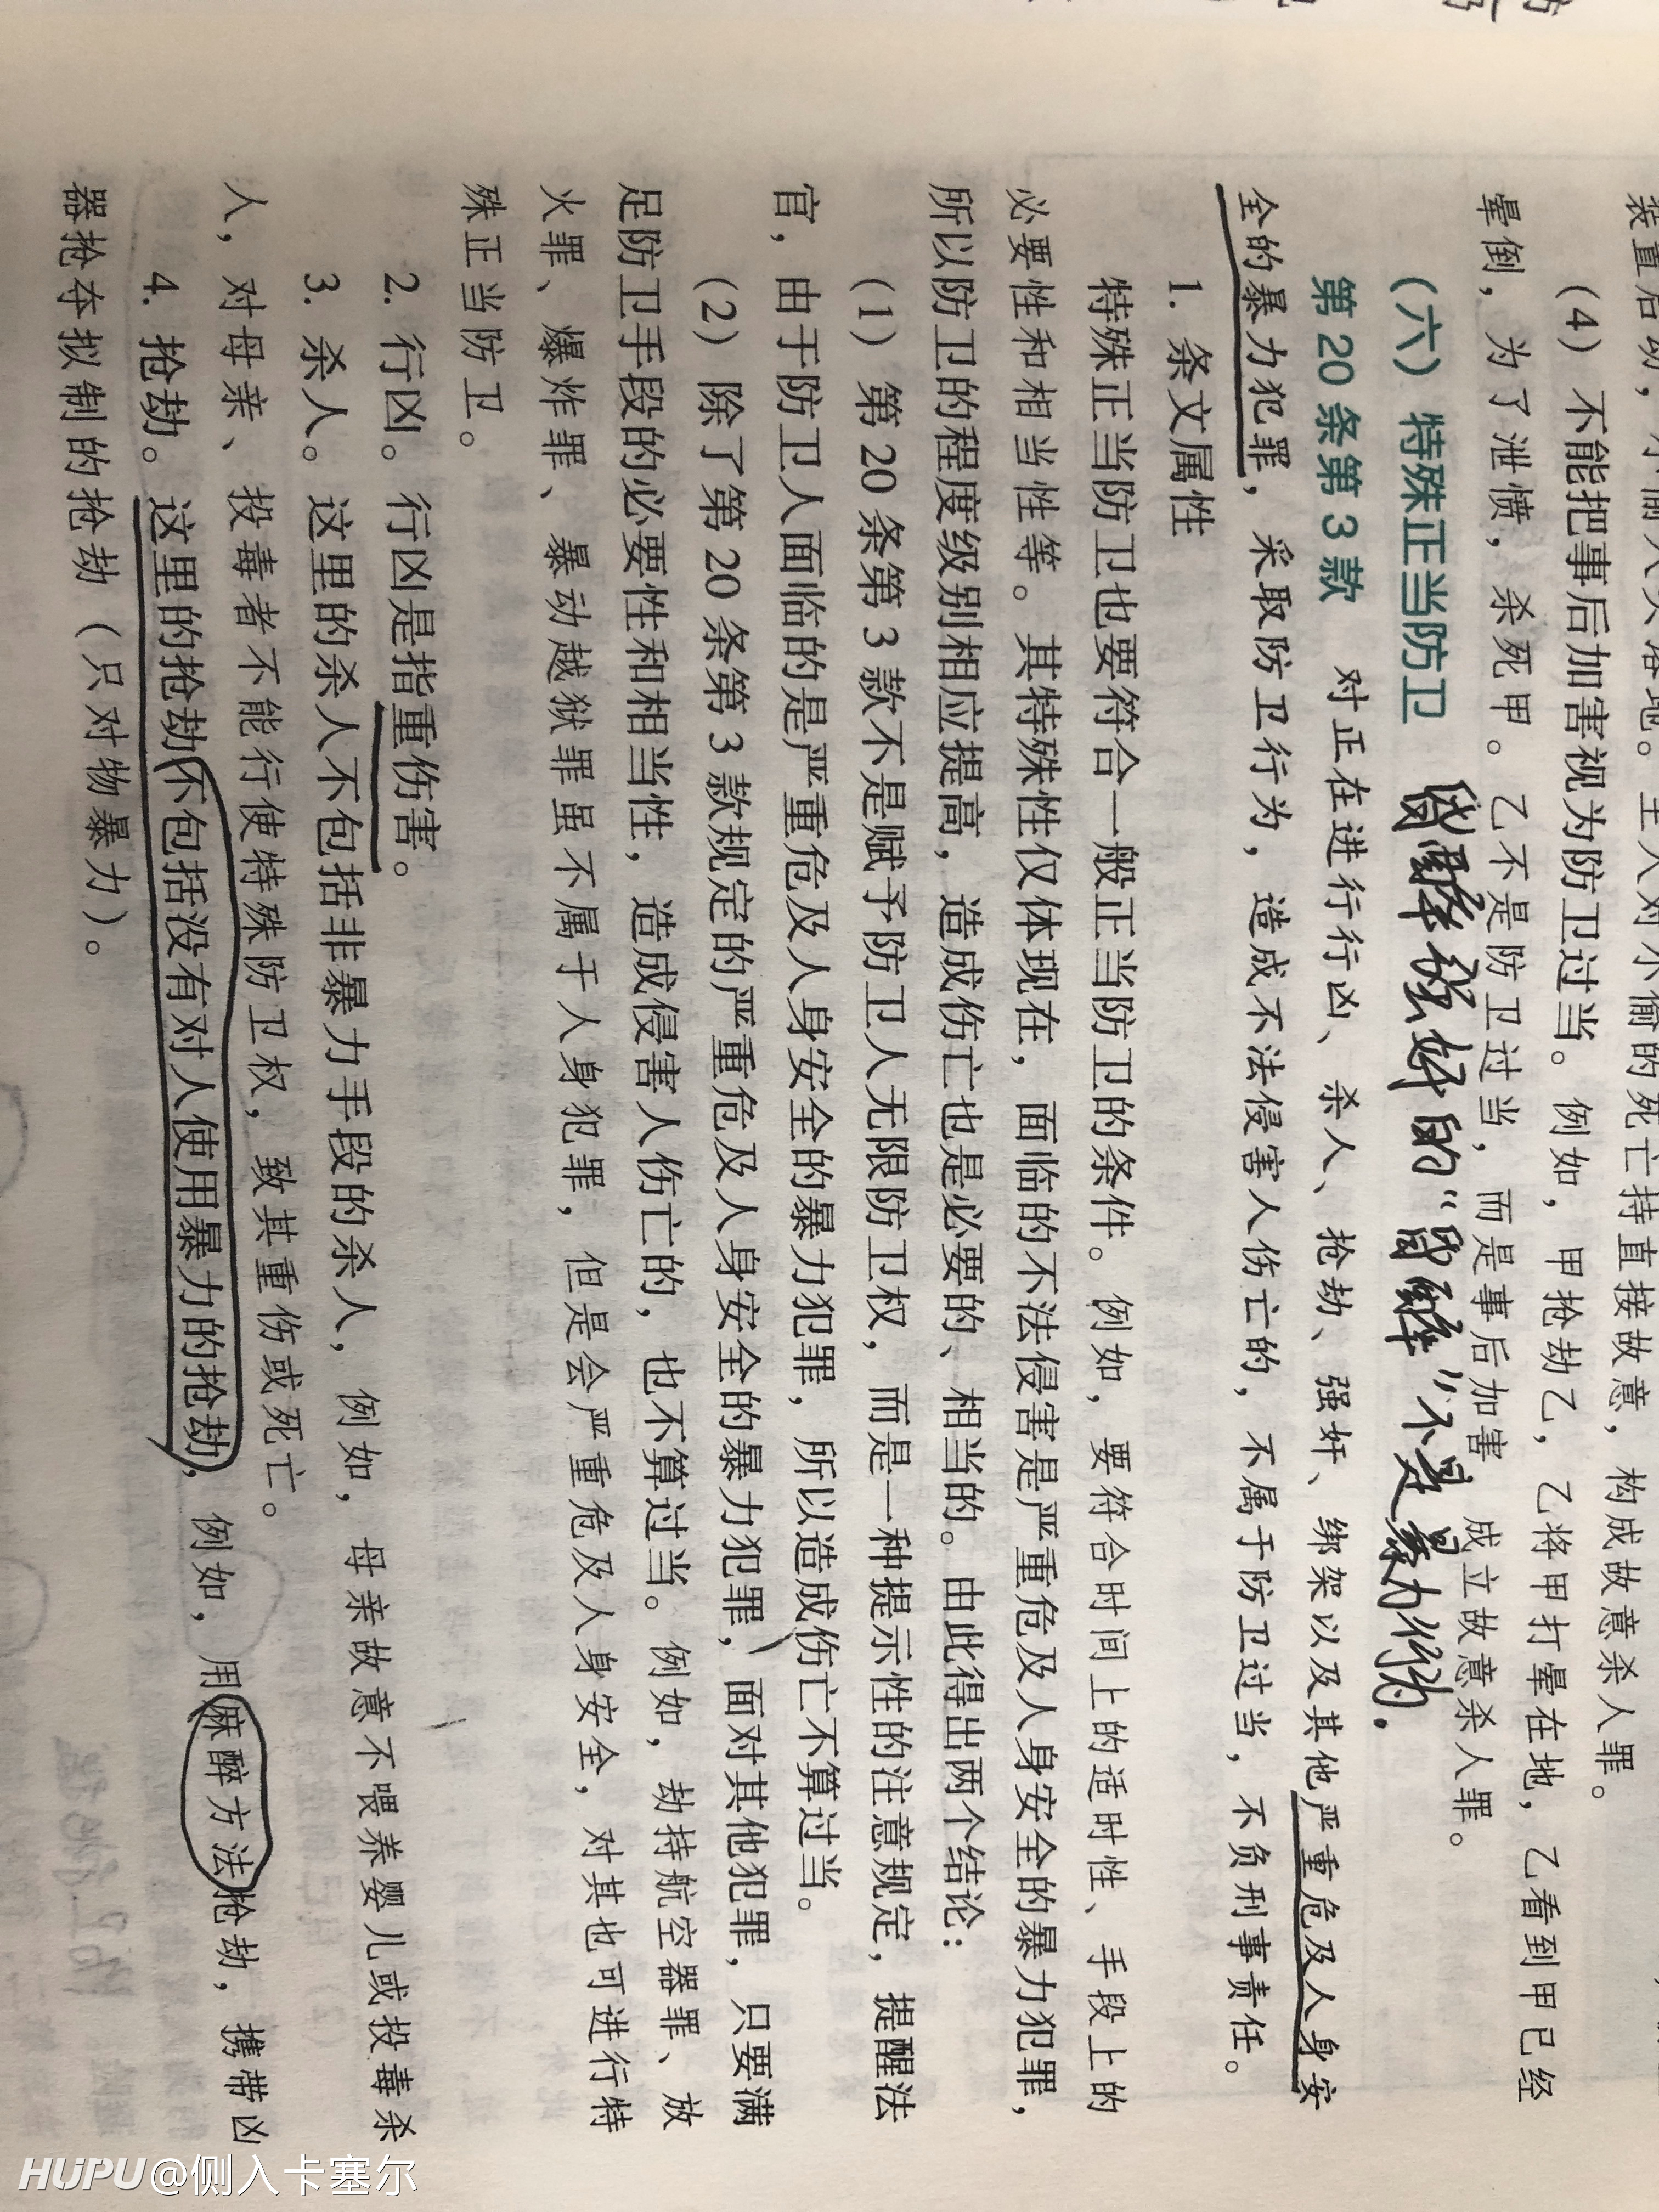 装置启动，小偷人头落地。主人对小偷的死亡持直接故意，构成故意杀人罪。
（4）不能把事后加害视为防卫过当。例如，甲抢劫乙，乙将甲打晕在地，乙看到甲已经
晕倒，为了泄愤，杀死甲。乙不是防卫过当，而是事后加害 成立故意杀人罪。
（六）特殊正当防卫 昏醉强奸的“昏醉”不是暴力行为.
第20条第3款 对正在进行行凶、杀人、抢劫、强奸、绑架以及其他严重危及人身安
全的暴力犯罪，采取防卫行为，造成不法侵害人伤亡的，不属于防卫过当，不负刑事责任。
1. 条文属性
特殊正当防卫也要符合一般正当防卫的条件。例如，要符合时间上的适时性、手段上的
必要性和相当性等。其特殊性仅体现在，面临的不法侵害是严重危及人身安全的暴力犯罪，
所以防卫的程度级别相应提高，造成伤亡也是必要的、相当的。由此得出两个结论：
（1）第20条第3款不是赋予防卫人无限防卫权，而是一种提示性的注意规定，提醒法
官，由于防卫人面临的是严重危及人身安全的暴力犯罪，所以造成伤亡不算过当。
（2）除了第20条第3款规定的严重危及人身安全的暴力犯罪，面对其他犯罪，只要满
足防卫手段的必要性和相当性，造成侵害人伤亡的，也不算过当。例如，劫持航空器罪、放
火罪、爆炸罪、暴动越狱罪虽不属于人身犯罪，但是会严重危及人身安全，对其也可进行特
殊正当防卫。
2. 行凶。行凶是指重伤害。
3. 杀人。这里的杀人不包括非暴力手段的杀人，例如，母亲故意不喂养婴儿或投毒杀
人，对母亲、投毒者不能行使特殊防卫权，致其重伤或死亡。
4. 抢劫。这里的抢劫不包括没有对人使用暴力的抢劫，例如，用麻醉方法抢劫，携带凶
器抢夺拟制的抢劫（只对物暴力）。
HUPU@侧入卡塞尔